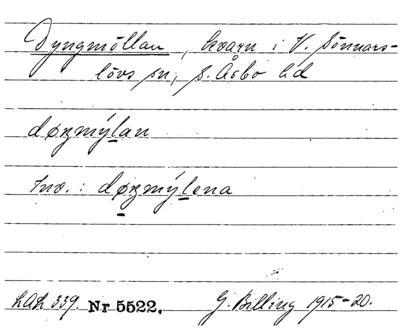 Dyngmöllan, kvarn i V. Sönnars-
lövs sn, S. Åsbo hd
døŋmýlan
Inv.: døŋmýlena
LAL 339. Nr 5522. G. Billing 1915-20.